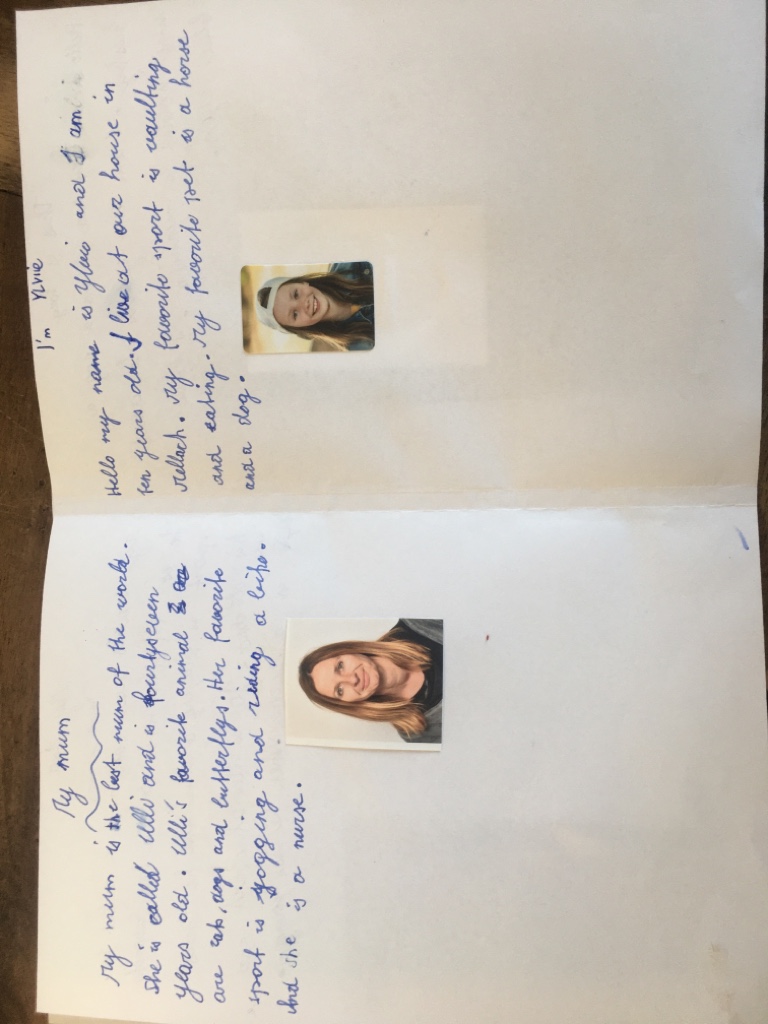 My mum
My mum is the best mum of the world.
She is called Ulli and is fourtyseven
years old. Ulli's favorite animal
are cats, dogs and butterflys. Her favorite
sport is jogging and riding a bike.
And she is a nurse.
I'm Ylvie
Hello my name is Ylvie and I am
ten years old. I live at our house in
Mellach. My favorite sport is vaulting
and eating. My favorite pet is a horse
and a dog.